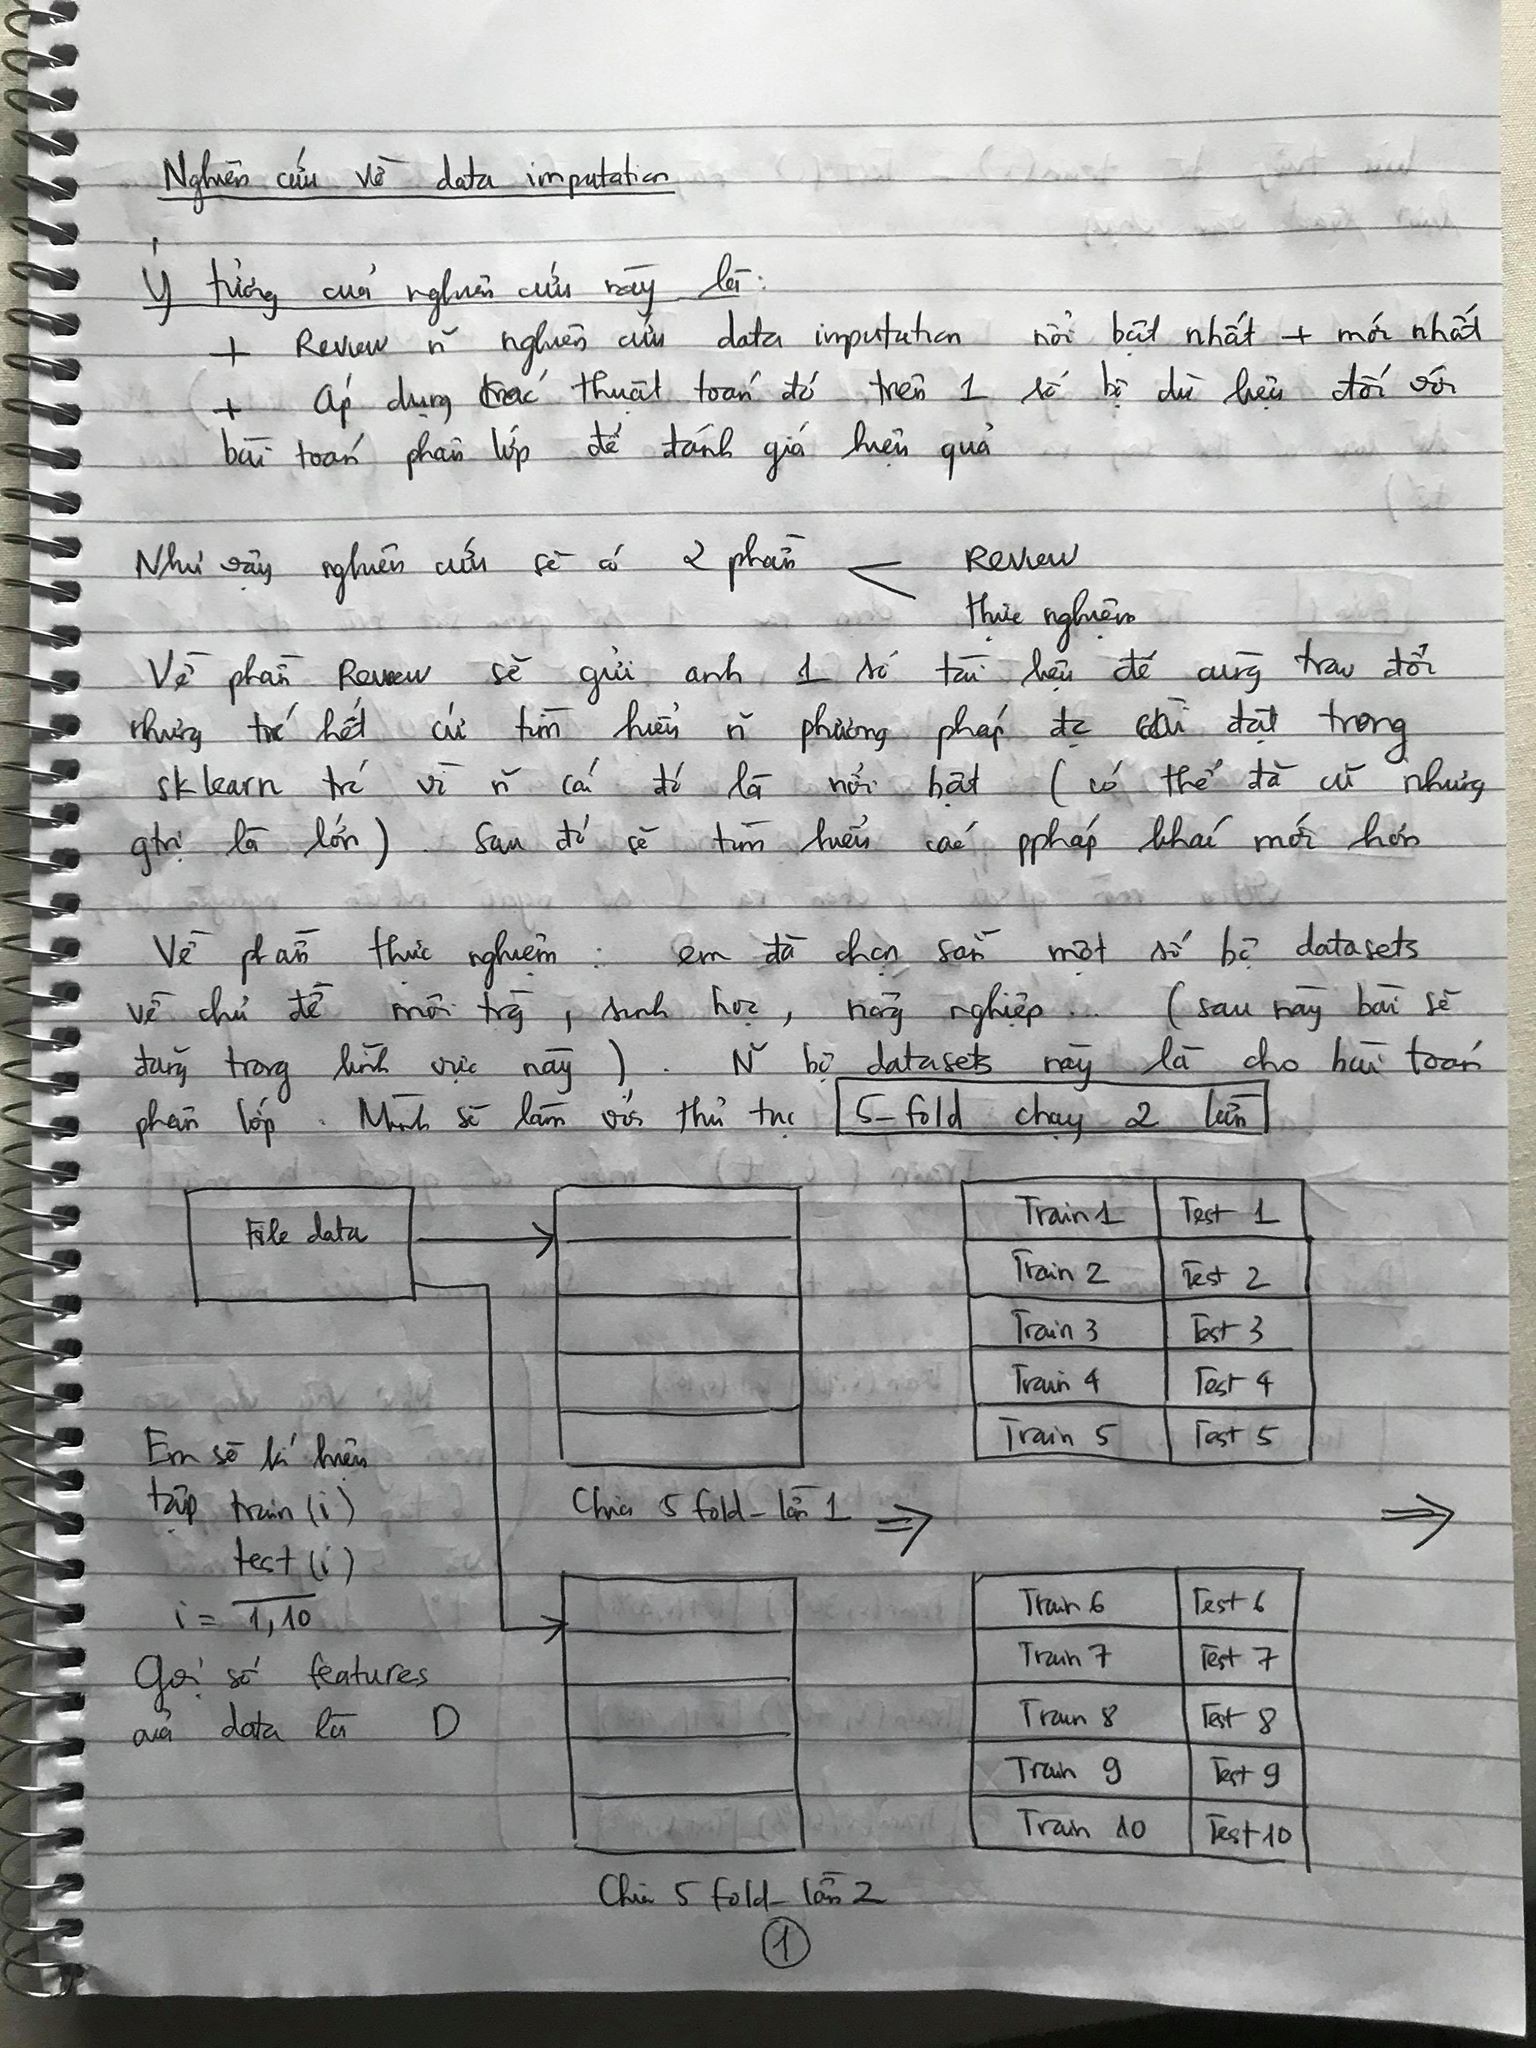 Nghiên cứu về data imputation
Ý tưởng của nghiên cứu này là:
+ Review n~ nghiên cứu data imputation nổi bật nhất + mới nhất
+ Áp dụng các thuật toán đó trên 1 số bộ dữ liệu đối với
bài toán phân lớp để đánh giá hiệu quả
Như vậy nghiên cứu sẽ có 2 phần < Review
thực nghiệm
Về phần Review sẽ gửi anh 1 số tài liệu để cùng trao đổi
nhưng trc hết cứ tìm hiểu n~ phương pháp đc cài đặt trong
sklearn trc vì n~ cái đó là nổi bật (có thể đã cũ nhưng
gtrị là lớn). Sau đó sẽ tìm hiểu các ppháp khác mới hơn
Về phần thực nghiệm: em đã chọn sẵn một số bộ datasets
về chủ đề môi trg, sinh học, nông nghiệp... (sau này bài sẽ
đăng trong lĩnh vực này). N~ bộ datasets này là cho bài toán
phân lớp. Mình sẽ làm với thủ tục 5-fold chạy 2 lần
File data
Train 1 Test 1
Train 2 Test 2
Train 3 Test 3
Train 4 Test 4
Train 5 Test 5
Chia 5 fold - lần 1 ⇒ ⇒
Em sẽ kí hiệu
tập train(i)
test(i)
i = 1,10
Gọi số features
của data là D
Train 6 Test 6
Train 7 Test 7
Train 8 Test 8
Train 9 Test 9
Train 10 Test 10
Chia 5 fold - lần 2
1